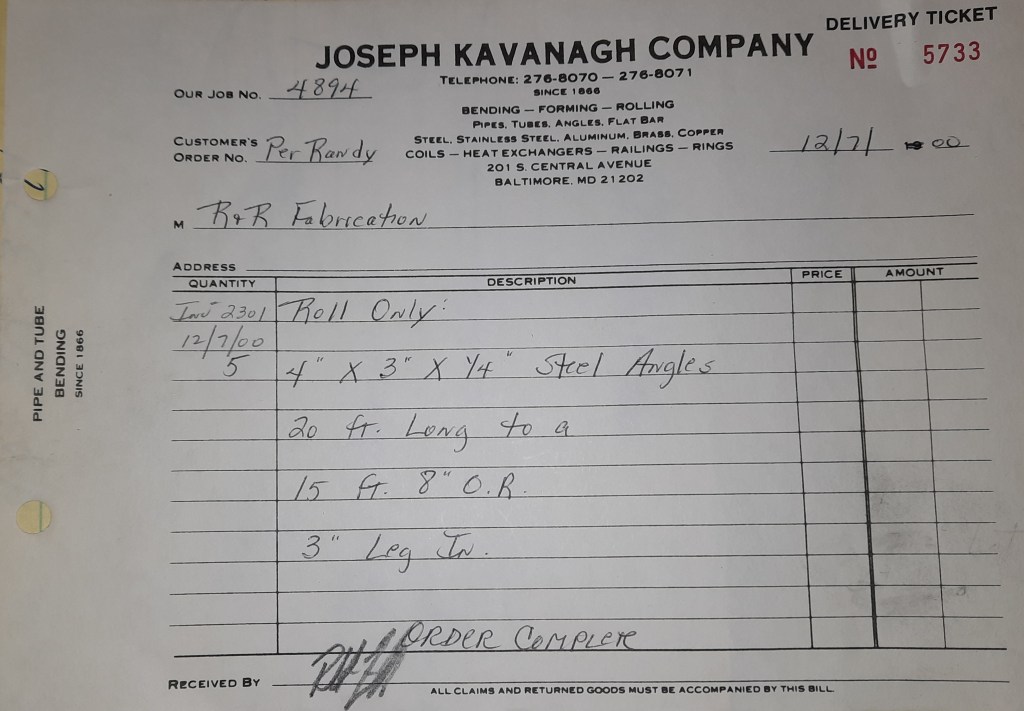 DELIVERY TICKET
JOSEPH KAVANAGH COMPANY
Nº 5733
TELEPHONE: 276-8070 — 276-8071
SINCE 1866
OUR JOB NO. 4894
BENDING — FORMING — ROLLING
PIPES, TUBES, ANGLES, FLAT BAR
STEEL, STAINLESS STEEL, ALUMINUM, BRASS, COPPER
COILS — HEAT EXCHANGERS — RAILINGS — RINGS
201 S. CENTRAL AVENUE
BALTIMORE, MD 21202
CUSTOMER'S
ORDER NO. Per Randy
12/7/ 00
M R+R Fabrication
ADDRESS
QUANTITY DESCRIPTION PRICE AMOUNT
Inv 2301 Roll Only:
12/7/00
5 4" X 3" X 1/4" Steel Angles
20 ft. Long to a
15 ft. 8" O.R.
3" Leg In.
ORDER COMPLETE
RECEIVED BY
ALL CLAIMS AND RETURNED GOODS MUST BE ACCOMPANIED BY THIS BILL
PIPE AND TUBE
BENDING
SINCE 1866